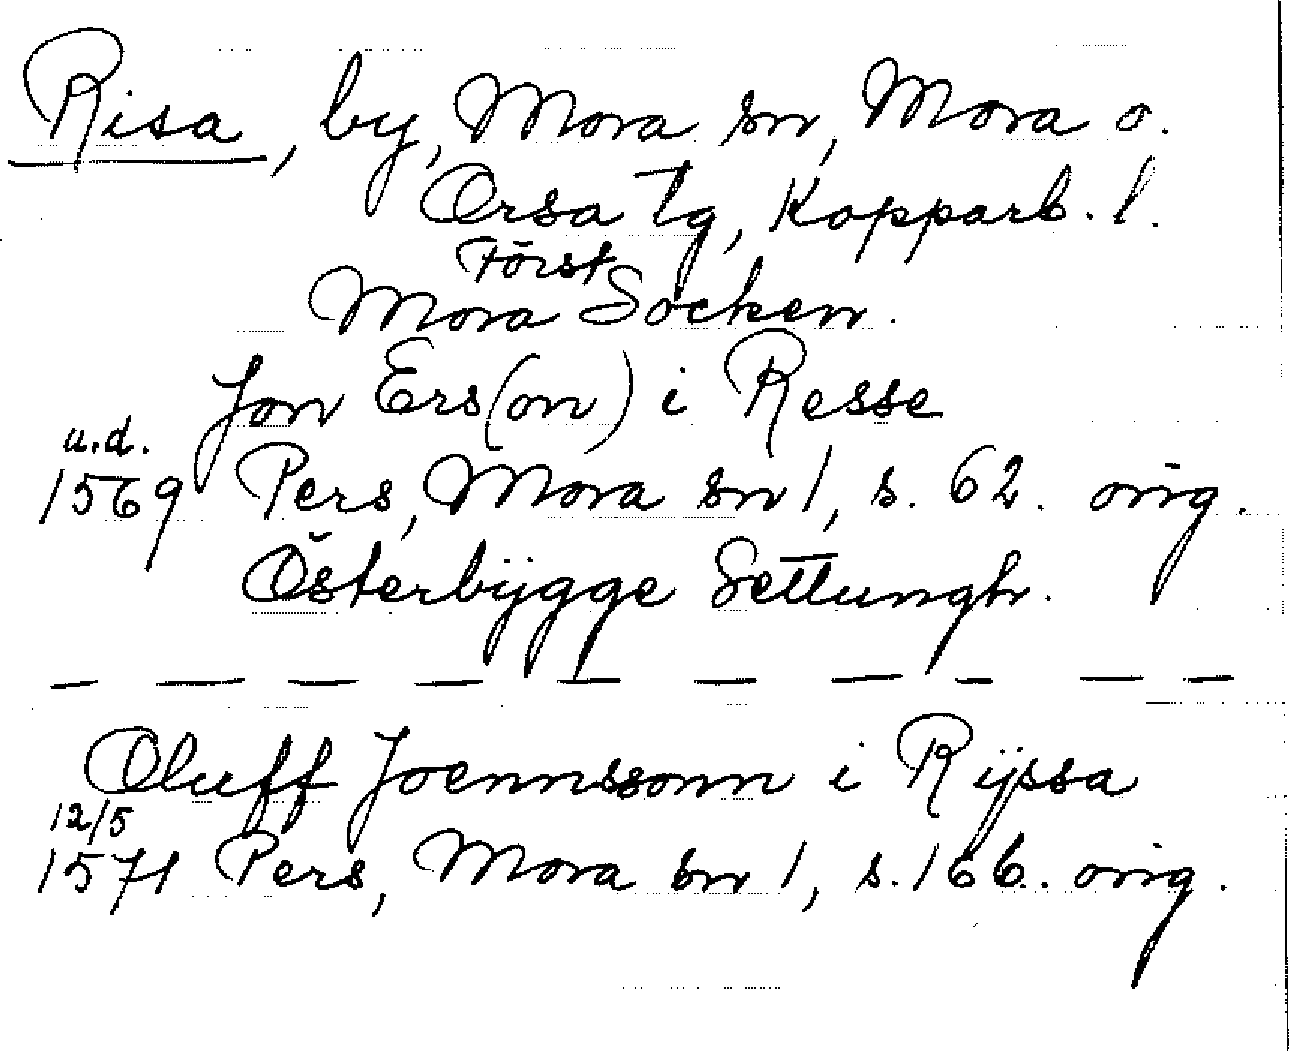 Risa, by, Mora sn, Mora o.
Orsa tg, Kopparb. l.
Först
Mora Socken.
Jon Ers(on) i Resse
u.d.
1569 Pers, Mora sn 1, s. 62. orig.
Österbÿgge Settungh.
Oluff Joennssonn i Rÿssa
12/5
1571 Pers, Mora sn 1, s. 166. orig.